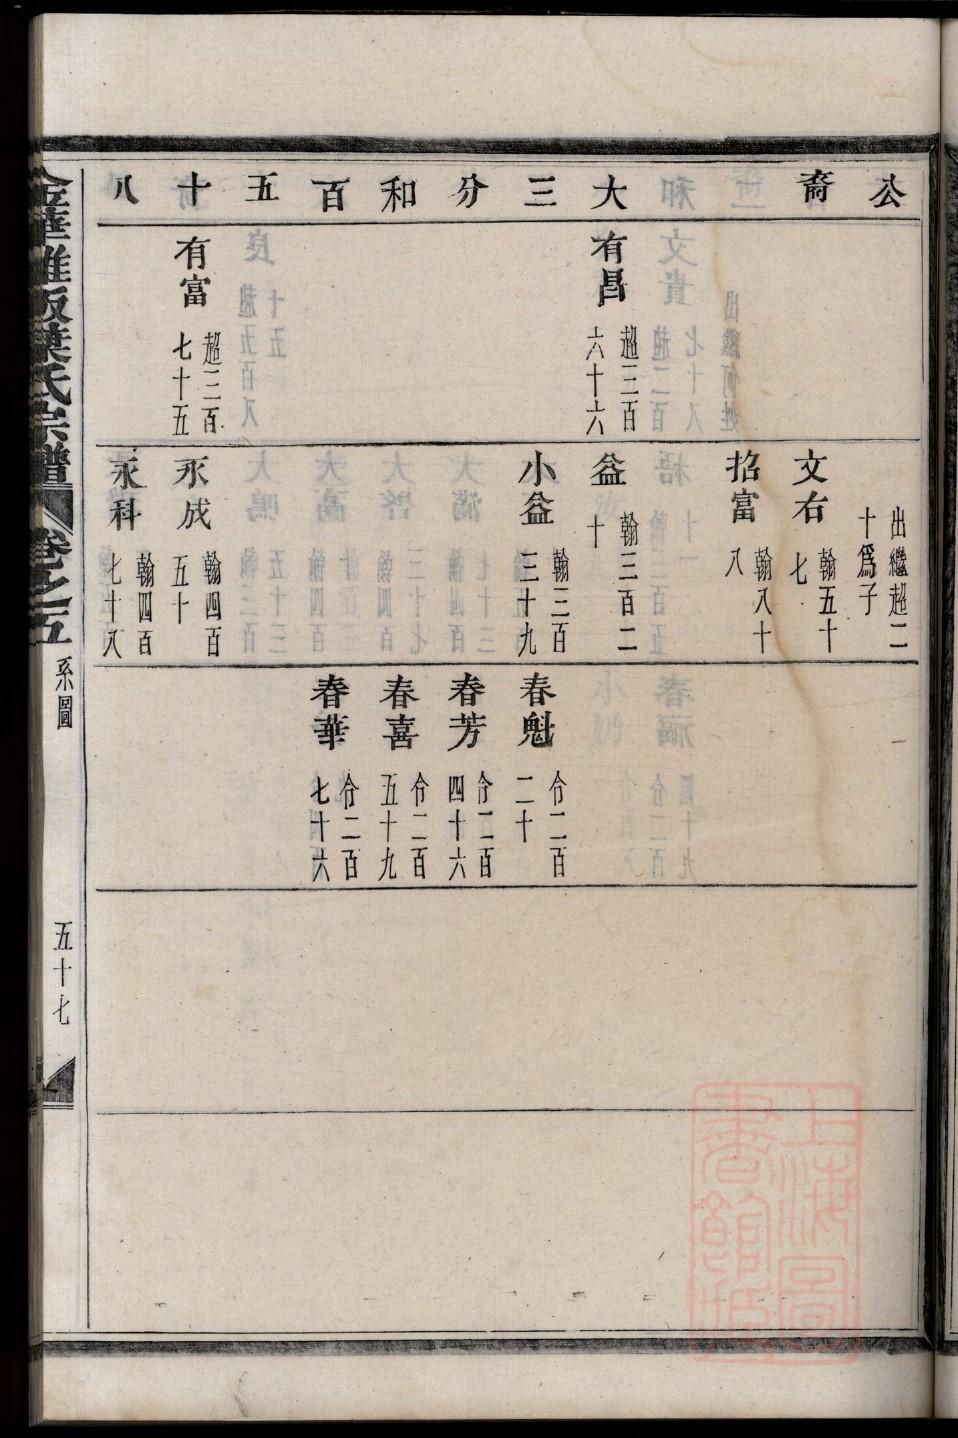 公裔 大三分和百五十八
有昌 超三百六十六
有富 超三百七十五
出繼超二十爲子
文右 翰五十七
招富 翰八十八
益 翰三百二十
小益 翰三百三十九
永成 翰四百五十
永科 翰四百七十八
春魁 令二百二十
春芳 令二百四十六
春喜 令二百五十九
春華 令二百七十六
金華雅畈葉氏宗譜 卷之五 系圖 五十七
上海圖書館藏